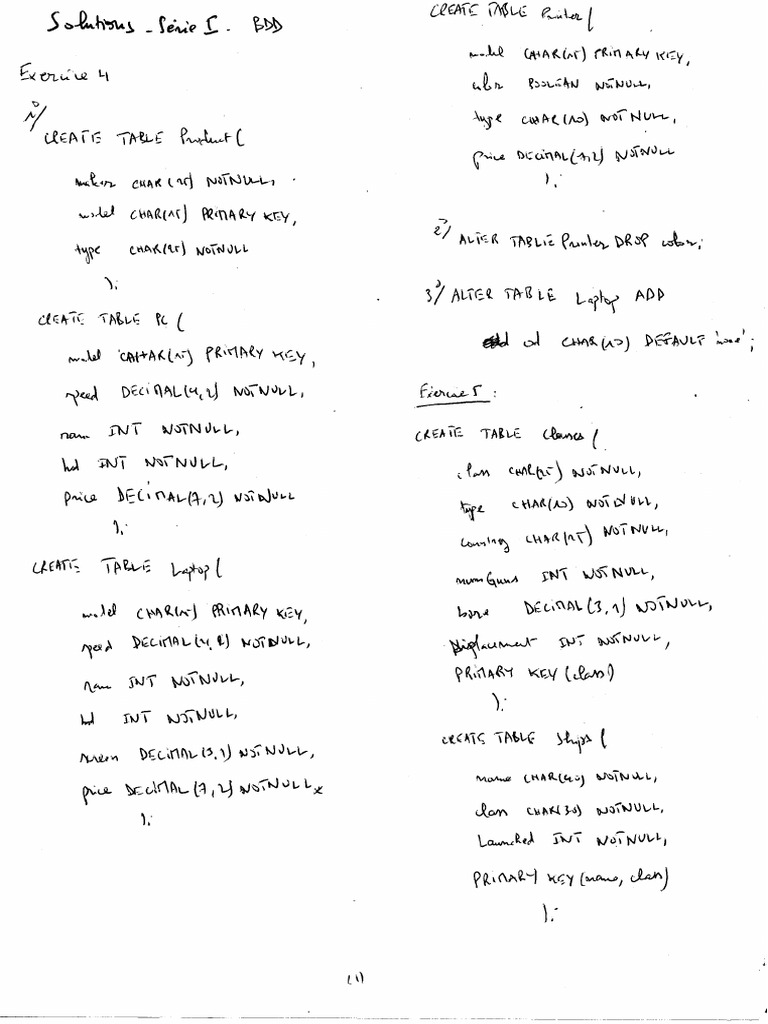 Solutions - Série I - BDD
Exercice 4
1°/
CREATE TABLE Product (
maker CHAR(25) NOT NULL,
model CHAR(15) PRIMARY KEY,
type CHAR(25) NOT NULL
);
CREATE TABLE PC (
model CHAR(15) PRIMARY KEY,
speed DECIMAL(4,2) NOT NULL,
ram INT NOT NULL,
hd INT NOT NULL,
price DECIMAL(7,2) NOT NULL
);
CREATE TABLE Laptop (
model CHAR(15) PRIMARY KEY,
speed DECIMAL(4,2) NOT NULL,
ram INT NOT NULL,
hd INT NOT NULL,
screen DECIMAL(3,1) NOT NULL,
price DECIMAL(7,2) NOT NULL
);
CREATE TABLE Printer (
model CHAR(15) PRIMARY KEY,
color BOOLEAN NOT NULL,
type CHAR(10) NOT NULL,
price DECIMAL(7,2) NOT NULL
);
2°/ ALTER TABLE Printer DROP color;
3°/ ALTER TABLE Laptop ADD
od CHAR(10) DEFAULT 'none';
Exercice 5 :
CREATE TABLE Classes (
class CHAR(25) NOT NULL,
type CHAR(10) NOT NULL,
country CHAR(25) NOT NULL,
numGuns INT NOT NULL,
bore DECIMAL(3,1) NOT NULL,
displacement INT NOT NULL,
PRIMARY KEY (class)
);
CREATE TABLE Ships (
name CHAR(40) NOT NULL,
class CHAR(30) NOT NULL,
Launched INT NOT NULL,
PRIMARY KEY (name, class)
);
(1)